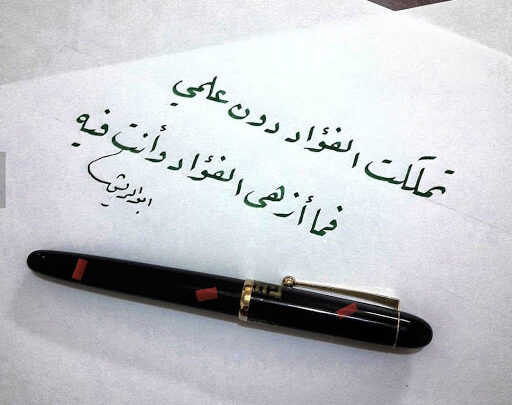 تملكت الفؤاد دون علمي
فما أزهى الفؤاد وأنت فيه
ابو الريش